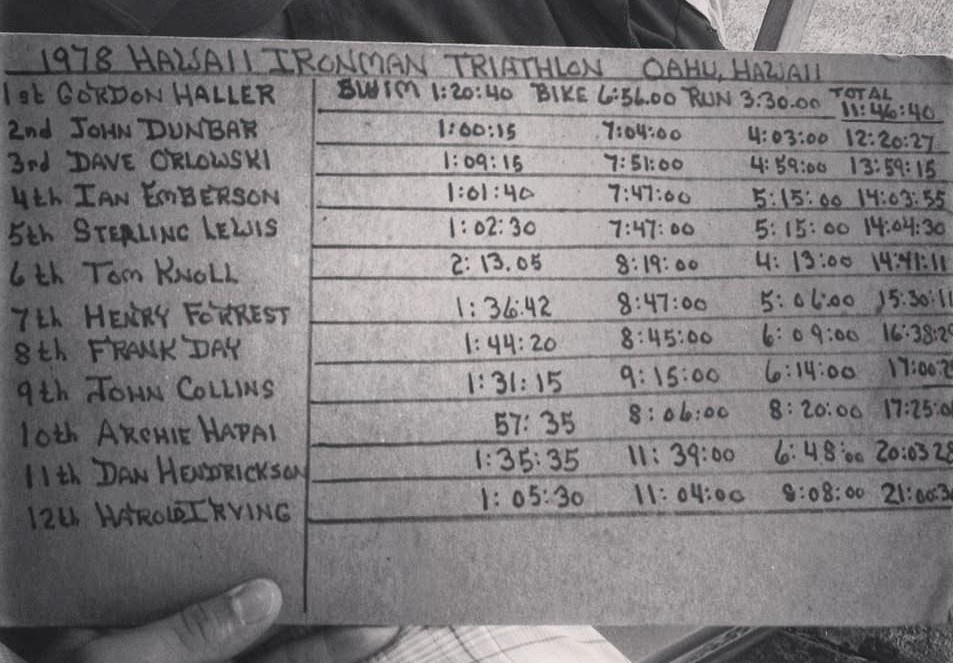 1978 HAWAII IRONMAN TRIATHLON OAHU, HAWAII
1st GORDON HALLER SWIM 1:20:40 BIKE 6:56.00 RUN 3:30.00 TOTAL 11:46:40
2nd JOHN DUNBAR 1:00:15 7:04:00 4:03:00 12:20:27
3rd DAVE ORLOWSKI 1:09:15 7:51:00 4:59:00 13:59:15
4th IAN EMBERSON 1:01:40 7:47:00 5:15:00 14:03:55
5th STERLING LEWIS 1:02:30 7:47:00 5:15:00 14:04:30
6th TOM KNOLL 2:13.05 8:19:00 4:13:00 14:41:11
7th HENRY FORREST 1:36.42 8:47:00 5:06:00 15:30:11
8th FRANK DAY 1:44:20 8:45:00 6:09:00 16:38:2
9th JOHN COLLINS 1:31:15 9:15:00 6:14:00 17:00:
10th ARCHIE HAPAI 57:35 8:06:00 8:20:00 17:25:0
11th DAN HENDRICKSON 1:35:35 11:39:00 6:48:00 20:03 28
12th HAROLD IRVING 1:05:30 11:04:00 8:08:00 21:00:3